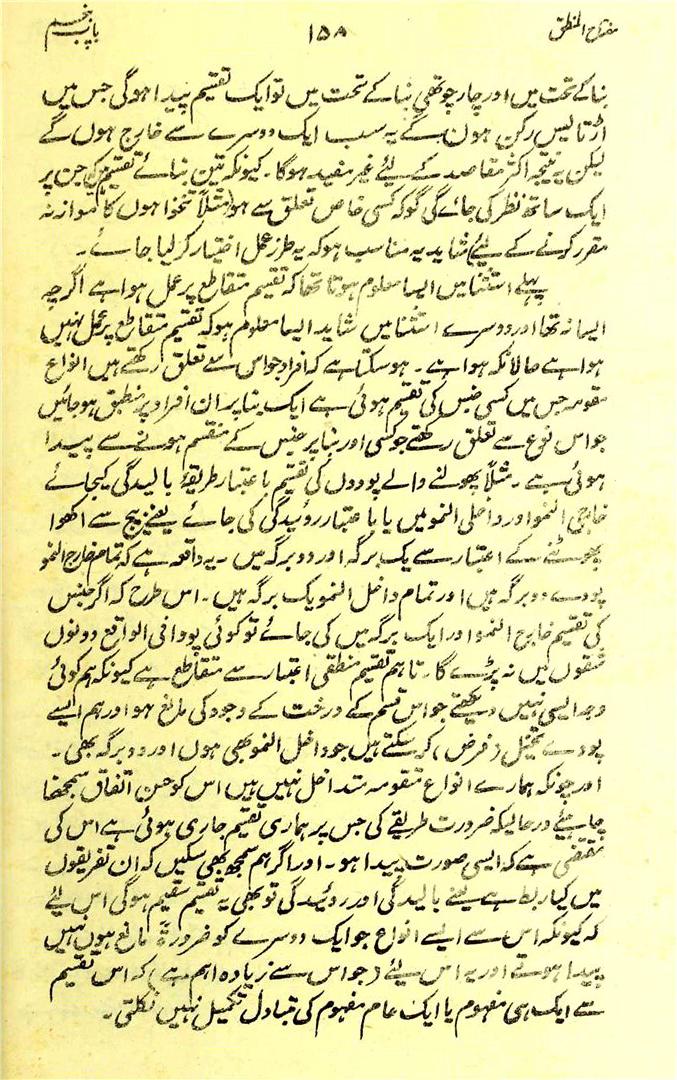 مفتاح المنطق ۱۵۸ باب پنجم
بنا کے تحت میں اور چار چوتھی بنا کے تحت میں تو ایک تقسیم پیدا ہوگی جس میں
اڑتالیس رکن ہوں گے یہ سب ایک دوسرے سے خارج ہوں گے
لیکن یہ نتیجہ اکثر مقاصد کے لیئے غیر مفید ہوگا۔ کیونکہ تین بنائے تقسیم کی جن پر
ایک ساتھ نظر کی جائے گی گو کہ کسی خاص تعلق سے ہو (مثلاً تنخواہوں کا موازنہ
مقرر کرنے کے لیئے) شاید یہ مناسب ہو کہ یہ طرز عمل اختیار کر لیا جائے۔
پہلے استثنا میں ایسا معلوم ہوتا تھا کہ تقسیم متقاطع پر عمل ہوا ہے اگرچہ
ایسا نہ تھا اور دوسرے استثنا میں شاید ایسا معلوم ہو کہ تقسیم متقاطع پر عمل نہیں
ہوا ہے حالانکہ ہوا ہے۔ ہو سکتا ہے کہ افراد جو اس سے تعلق رکھتے ہیں انواع
مقومہ جس میں کسی جنس کی تقسیم ہوئی ہے ایک بنا پر ان افراد پر منطبق ہو جائیں
جو اس نوع سے تعلق رکھتے جو کسی اور بنا پر جنس کے منقسم ہونے سے پیدا
ہوئی ہے۔ مثلاً پھولنے والے پودوں کی تقسیم باعتبار طریقۂ بالیدگی کیجائے
خارجی النمو اور داخلی النمو میں یا باعتبار روئیدگی کی جائے یعنے بیج سے اکھوا
پھوٹنے کے اعتبار سے یک برگہ اور دو برگہ میں۔ یہ واقعہ ہے کہ تمام خارج النمو
پودے دو برگہ ہیں اور تمام داخل النمو یک برگہ ہیں۔ اس طرح کہ اگر جنس
کی تقسیم خارج النمو اور ایک برگہ میں کی جائے تو کوئی پودا فی الواقع دونوں
شقوں میں نہ پڑے گا۔ تاہم تقسیم منطقی اعتبار سے متقاطع ہے کیونکہ ہم کوئی
وجہ ایسی نہیں دیکھتے جو اس قسم کے درخت کے وجود کی مانع ہو اور ہم ایسے
پودے تخیل (فرض) کر سکتے ہیں جو داخل النمو بھی ہوں اور دو برگہ بھی۔
اور چونکہ ہمارے انواع مقومہ متداخل نہیں ہیں اس کو حسن اتفاق سمجھنا
چاہیئے درحالیکہ ضرورت طریقے کی جس پر ہماری تقسیم جاری ہوئی ہے اس کی
مقتضی ہے کہ ایسی صورت پیدا ہو۔ اور اگر ہم سمجھ بھی سکیں کہ ان تفریقوں
میں کیا ربط ہے یعنے بالیدگی اور روئیدگی تو بھی یہ تقسیم سقیم ہوگی اس لیئے
کہ کیونکہ اس سے ایسے انواع جو ایک دوسرے کو ضرورۃً مانع ہوں نہیں
پیدا ہوتے اور یہ اس لیئے (جو اس سے زیادہ اہم ہے) کہ اس تقسیم
سے ایک ہی مفہوم یا ایک عام مفہوم کی متبادل تکمیل نہیں نکلتی۔